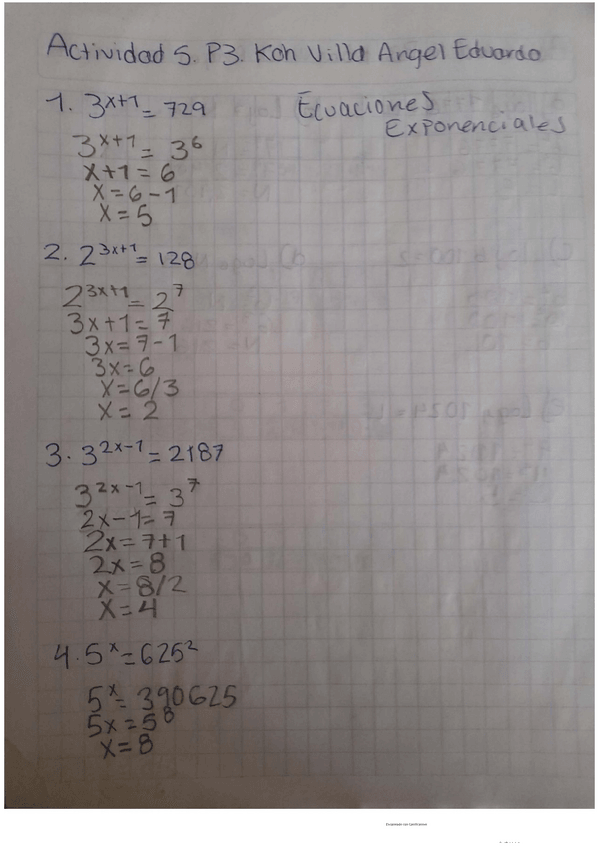 Actividad 5. P3. Koh Villa Angel Eduardo
1. 3^{x+1} = 729 Ecuaciones
Exponenciales
3^{x+1} = 3^6
x+1 = 6
x = 6-1
x = 5
2. 2^{3x+1} = 128
2^{3x+1} = 2^7
3x+1 = 7
3x = 7-1
3x = 6
x = 6/3
x = 2
3. 3^{2x-1} = 2187
3^{2x-1} = 3^7
2x-1 = 7
2x = 7+1
2x = 8
x = 8/2
x = 4
4. 5^x = 625^2
5^x = 390625
5x = 5^8
x = 8